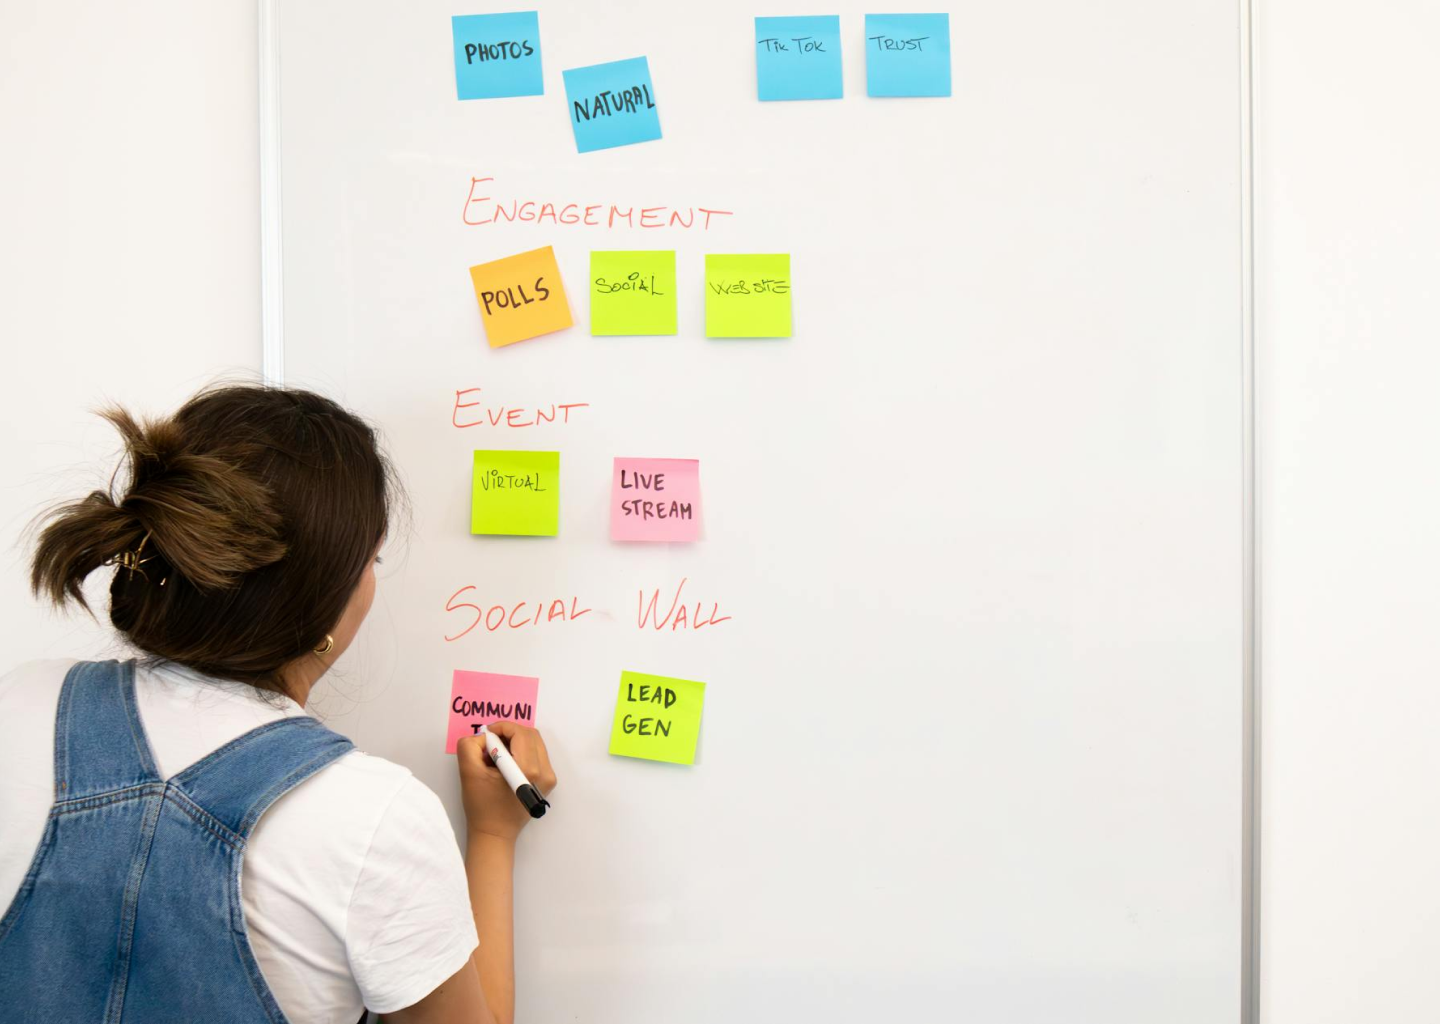 PHOTOS
NATURAL
Tik Tok
TRUST
ENGAGEMENT
POLLS
SOCiAL
WEBSITE
EVENT
ViRTUAL
LIVE
STREAM
SOCIAL WALL
COMMUNI
LEAD
GEN